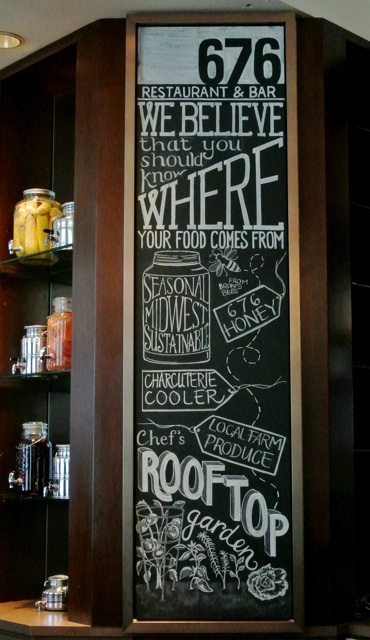 676
RESTAURANT & BAR
WE BELIEVE
that you
should
know
WHERE
YOUR FOOD COMES FROM
SEASONAL
MIDWEST
SUSTAINABLE
FROM
BRON'S
BEES
676
HONEY
CHARCUTERIE
COOLER
LOCAL FARM
PRODUCE
Chef's
ROOFTOP
garden